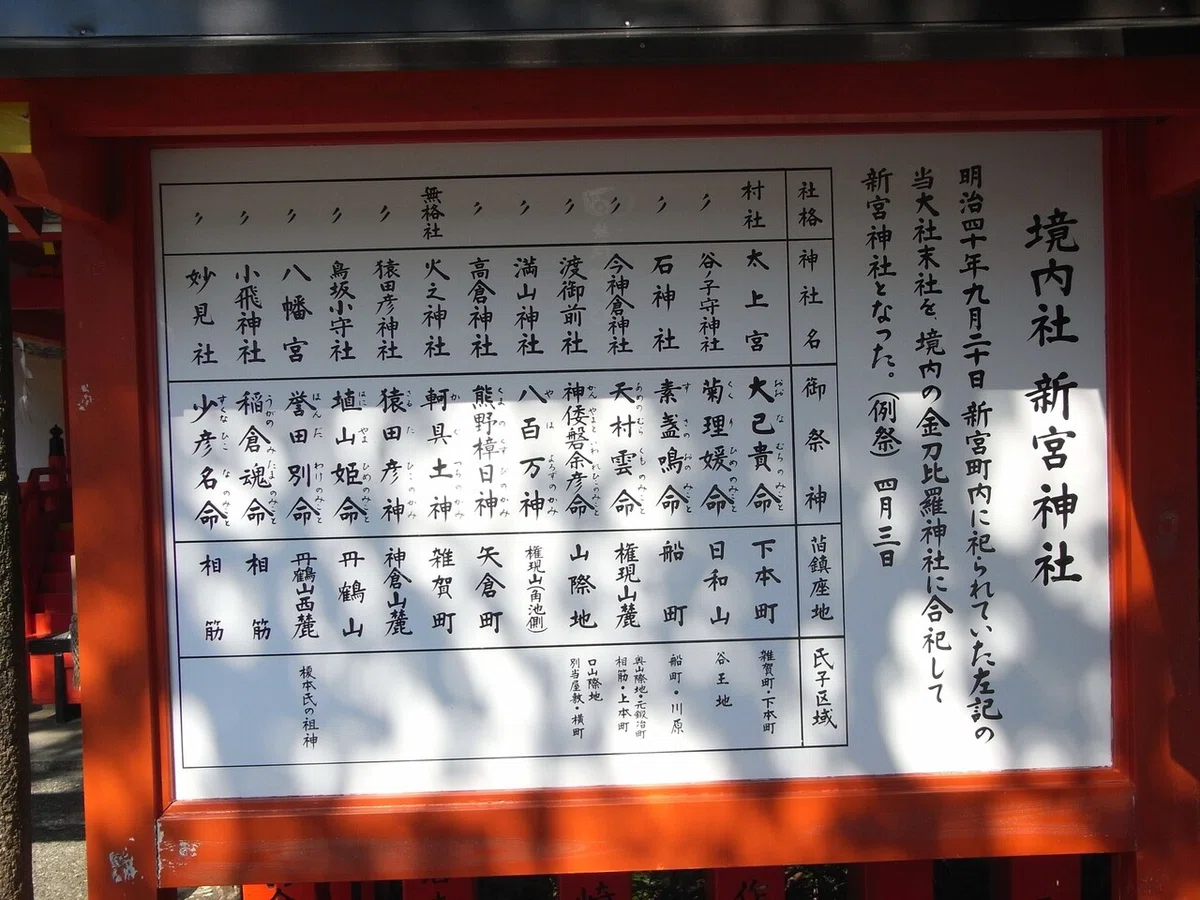 境内社 新宮神社
明治四十年九月二十日 新宮町内に祀られていた左記の
当大社末社を、境内の金刀比羅神社に合祀して
新宮神社となった。(例祭) 四月三日
社格 神社名 御祭神 旧鎮座地 氏子区域
村社 太上宮 大己貴命 下本町 雑賀町・下本町
〃 谷ノ子守神社 菊理媛命 日和山 谷王地
〃 石神社 素盞鳴命 船町 船町・川原
〃 今神倉神社 天村雲命 権現山麓 奥山際地・元鍛冶町 相筋・上本町
〃 渡御前社 神倭磐余彦命 山際地 口山際地 別当屋敷・横町
〃 満山神社 八百万神 権現山(角池側)
〃 高倉神社 熊野樟日神 矢倉町
無格社 火之神社 軻具土神 雑賀町
〃 猿田彦神社 猿田彦神 神倉山麓
〃 鳥坂小守社 埴山姫命 丹鶴山
〃 八幡宮 誉田別命 丹鶴山西麓 榎本氏の祖神
〃 小飛神社 稲倉魂命 相筋
〃 妙見社 少彦名命 相筋